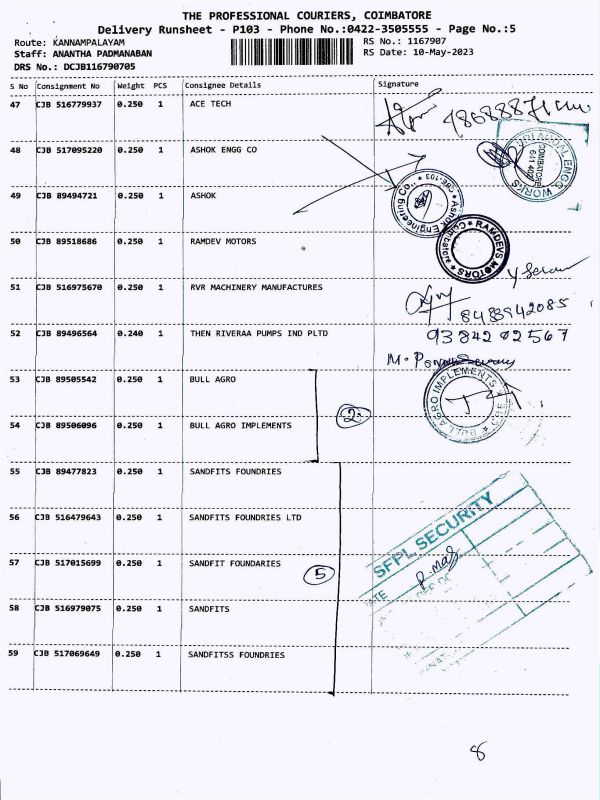 THE PROFESSIONAL COURIERS, COIMBATORE
Delivery Runsheet - P103 - Phone No.:0422-3505555 - Page No.:5
Route: KANNAMPALAYAM RS No.: 1167907
Staff: ANANTHA PADMANABAN RS Date: 10-May-2023
DRS No.: DCJB116790705
S No Consignment No Weight PCS Consignee Details Signature
47 CJB 516779937 0.250 1 ACE TECH
48 CJB 517095220 0.250 1 ASHOK ENGG CO
COIMBATORE
WORKS
49 CJB 89494721 0.250 1 ASHOK
Ashok Engineering Co.,
50 CJB 89518686 0.250 1 RAMDEV MOTORS
RAMDEVS MOTORS
51 CJB 516975670 0.250 1 RVR MACHINERY MANUFACTURES
8488942085
52 CJB 89496564 0.240 1 THEN RIVERAA PUMPS IND PLTD 9384202567
53 CJB 89505542 0.250 1 BULL AGRO
BULL AGRO IMPLEMENTS
2
54 CJB 89506096 0.250 1 BULL AGRO IMPLEMENTS
55 CJB 89477823 0.250 1 SANDFITS FOUNDRIES
56 CJB 516479643 0.250 1 SANDFITS FOUNDRIES LTD
SFPL SECURITY
57 CJB 517015699 0.250 1 SANDFIT FOUNDARIES
5
58 CJB 516979075 0.250 1 SANDFITS
59 CJB 517069649 0.250 1 SANDFITSS FOUNDRIES
8